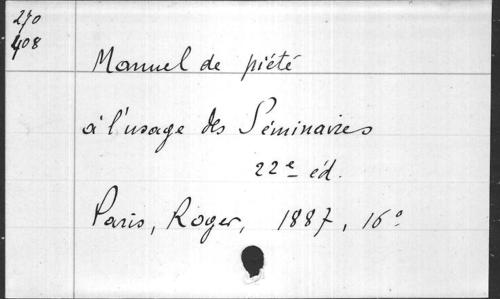 270
408
Manuel de piété
à l'usage des Séminaires
22e éd.
Paris, Roger, 1887, 16°